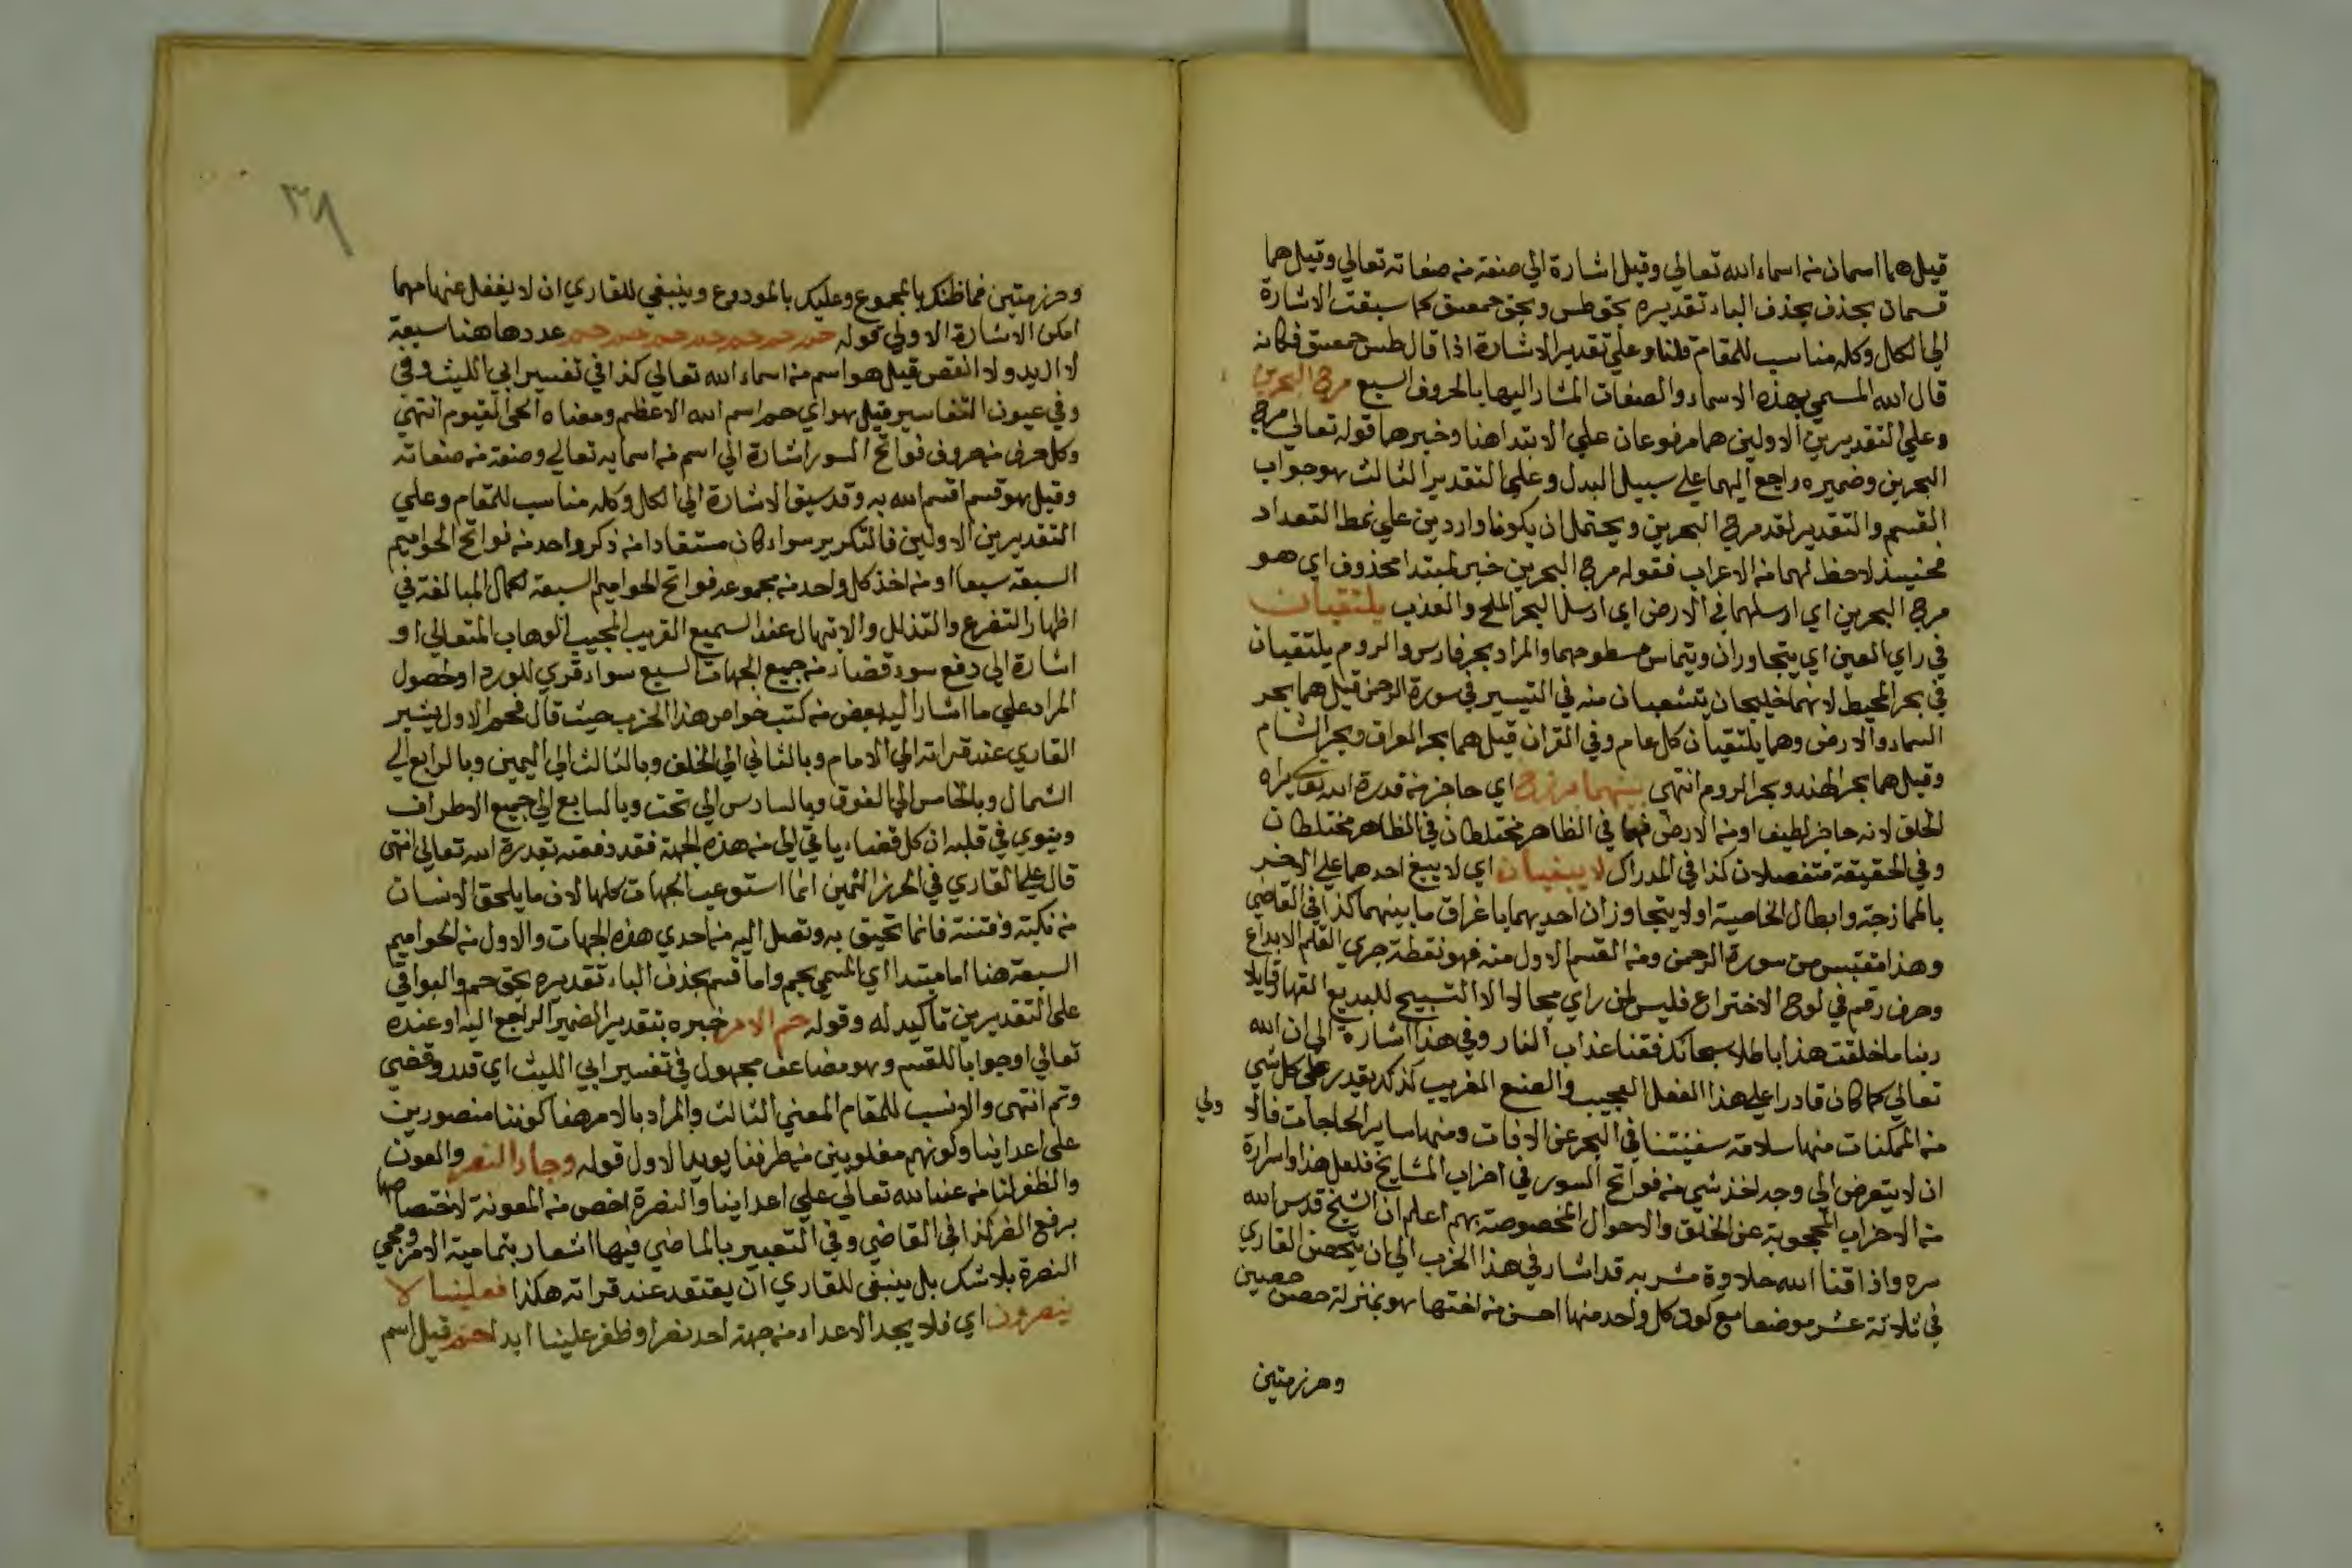 قيل هما اسمان من اسماء الله تعالي وقيل اشارة الي صنعة من صفاته تعالي وقيل هما
قسمان بحذف بحذف الباء تقديره بحق طس وبحق حمعسق كما سبقت الاشارة
الي الكل وكله مناسب للمقام قلنا وعلي تقدير الاشارة اذا قال طس حمعسق فكانه
قال الله المسمي بهذه الاسماء والصفات المشار اليها بالحروف السبع مرج البحرين
وعلي التقديرين الاولين هما مرفوعان علي الابتدا هنا وخبرهما قوله تعالي مرج
البحرين وضميره راجع اليهما علي سبيل البدل وعلي التقدير الثالث هو جواب
القسم والتقدير لقد مرج البحرين ويحتمل ان يكونا واردين علي نمط التعداد
فحينيذ لا حظ لهما من الاعراب فقوله مرج البحرين خبر لمبتدا محذوف اي هو
مرج البحرين اي ارسلهما في الارض اي ارسل البحر الملح والعذب يلتقيان
في راي العين اي يتجاوران ويتماس سطوحهما والمراد بحر فارس والروم يلتقيان
في بحر المحيط لانهما خليجان يتشعبان منه في التيسير في سورة الرحمن قيل هما بحر
السماء والارض وهما يلتقيان كل عام وفي القران قيل هما بحر العراق وبحر الشام
وقيل هما بحر الهند وبحر الروم انتهي بينهما برزخ اي حاجز من قدرة الله تعالي يراه
الخلق لانه حاجز لطيف او من الارض فهما في الظاهر مختلطان في الظاهر مختلطان
وفي الحقيقة متفصلان كذا في المدراك لا يبغيان اي لا يبغ احدهما علي الاخر
بالممازجة وابطال الخاصية او لا يتجاوزان احديهما باغراق ما بينهما كذا في القاضي
وهذا مقتبس من سورة الرحمن ومن القسم الاول منه فهو نقطة جري القلم الابداع
وحرف رقم في لوح الاختراع فليس لمن راي مجالا الا التسبيح للبديع القهار قايلا
ربنا ما خلقت هذا باطلا سبحانك فقنا عذاب النار وفي هذا اشارة الي ان الله
تعالي كما كان قادرا علي هذا الفعل العجيب والصنع الغريب كذلك يقدر علي كل شي
من الممكنات منها سلامة سفينتنا في البحر عن الافات ومنها ساير الحاجات فالا ولي
ان لا يتعرض الي وجه اخذ شي من فواتح السور في احزاب المشايخ فلعل هذا واسراره
من الاحزاب المحجوبة عن الخلق والاحوال المخصوصة بهم اعلم ان الشيخ قدس الله
سره واذاقنا الله حلاوة مشربه قد اشار في هذا الحزب الي ان يتحصن القاري
في ثلاثة عشر موضعا مع كون كل واحد منها احسن من اختها هو بمنزلة حصن حصين
وحرز متين
وحرز متين فما ظنك بالمجموع وعليك بالمودوع وينبغي للقاري ان لا يغفل عنها مهما
امكن الاشارة الاولي قوله حم حم حم حم حم حم حم عددها هنا سبعة
لا ازيد ولا انقص قيل هو اسم من اسماء الله تعالي كذا في تفسير ابي الليث وفي
وفي عيون التفاسير قيل هو اي حم اسم الله الاعظم ومعناه الحي القيوم انتهي
وكل حرف من حروف فواتح السور اشارة الي اسم من اسمايه تعالي وصنعة من صفاته
وقيل هو قسم اقسم الله به وقد سبق الاشارة الي الكل وكله مناسب للمقام وعلي
التقديرين الاولين فالتكرير سواء كان مستفادا من ذكر واحد من فواتح الحواميم
السبعة سبعا او من اخذ كل واحد من مجموعة فواتح الحواميم السبعة لكمال المبالغة في
اظهار التضرع والتذلل والابتهال عند السميع القريب المجيب الوهاب المتعالي او
اشارة الي دفع سوء قضاء من جميع الجهات السبع سواء قري للورد او لحصول
المراد علي ما اشار اليه بعض من كتب خواص هذا الحزب حيث قال فحم الاول يشير
القاري عند قراته الي الامام وبالثاني الي الخلف وبالثالث الي اليمين وبالرابع الي
الشمال وبالخامس الي الفوق وبالسادس الي تحت وبالسابع الي جميع الاطراف
وينوي في قلبه ان كل قضاء ياتي الي من هذه الجهة فقد دفعته بقدرة الله تعالي انتهي
قال علي القاري في الحرز الثمين انما استوعب الجهات كلها لان ما يلحق الانسان
من نكبة وفتنة فانما تحيق به وتصل اليه من احدي هذه الجهات والاول من الحواميم
السبعة هنا اما مبتدا اي المسمي بحم واما قسم بحذف الباء تقديره بحق حم والبواقي
علي التقديرين تاكيد له وقوله حم الامر خبره بتقدير الضمير الراجع اليه او عنده
تعالي او جوابا للقسم وهو مضاعف مجهول في تفسير ابي الليث اي قدر وقضي
وتم انتهي والانسب للمقام المعني الثالث والمراد بالامر هنا كوننا منصورين
علي اعداينا وكونهم مغلوبين من طرفنا يويد الاول قوله وجاء النصر والعون
والظفر لنا من عند الله تعالي علي اعداينا والنصرة اخص من المعونة لاختصاصها
برفع الضر كذا في القاضي وفي التعبير بالماضي فيها اشعار بتمامية الامر ومجي
النصرة بلا شك بل ينبغي للقاري ان يعتقد عند قراته هكذا فعلينا لا
ينصرون اي فلا يجد الاعداء من جهة احد نصرا وظفر علينا ابدا حم قيل اسم